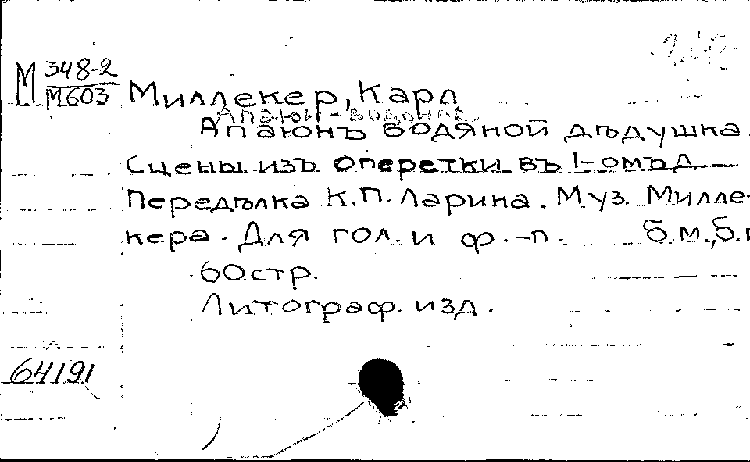 М 348-2
М603
Миллекер, Карл
Апаюн - водяной
Апаюнъ водяной дѣдушка.
Сцены изъ оперетки въ 1-омъ д.
Передѣлка К.П. Ларина. Муз. Милле-
кера. Для гол. и ф.-п. б.м., б.г
60стр.
Литограф. изд.
64191